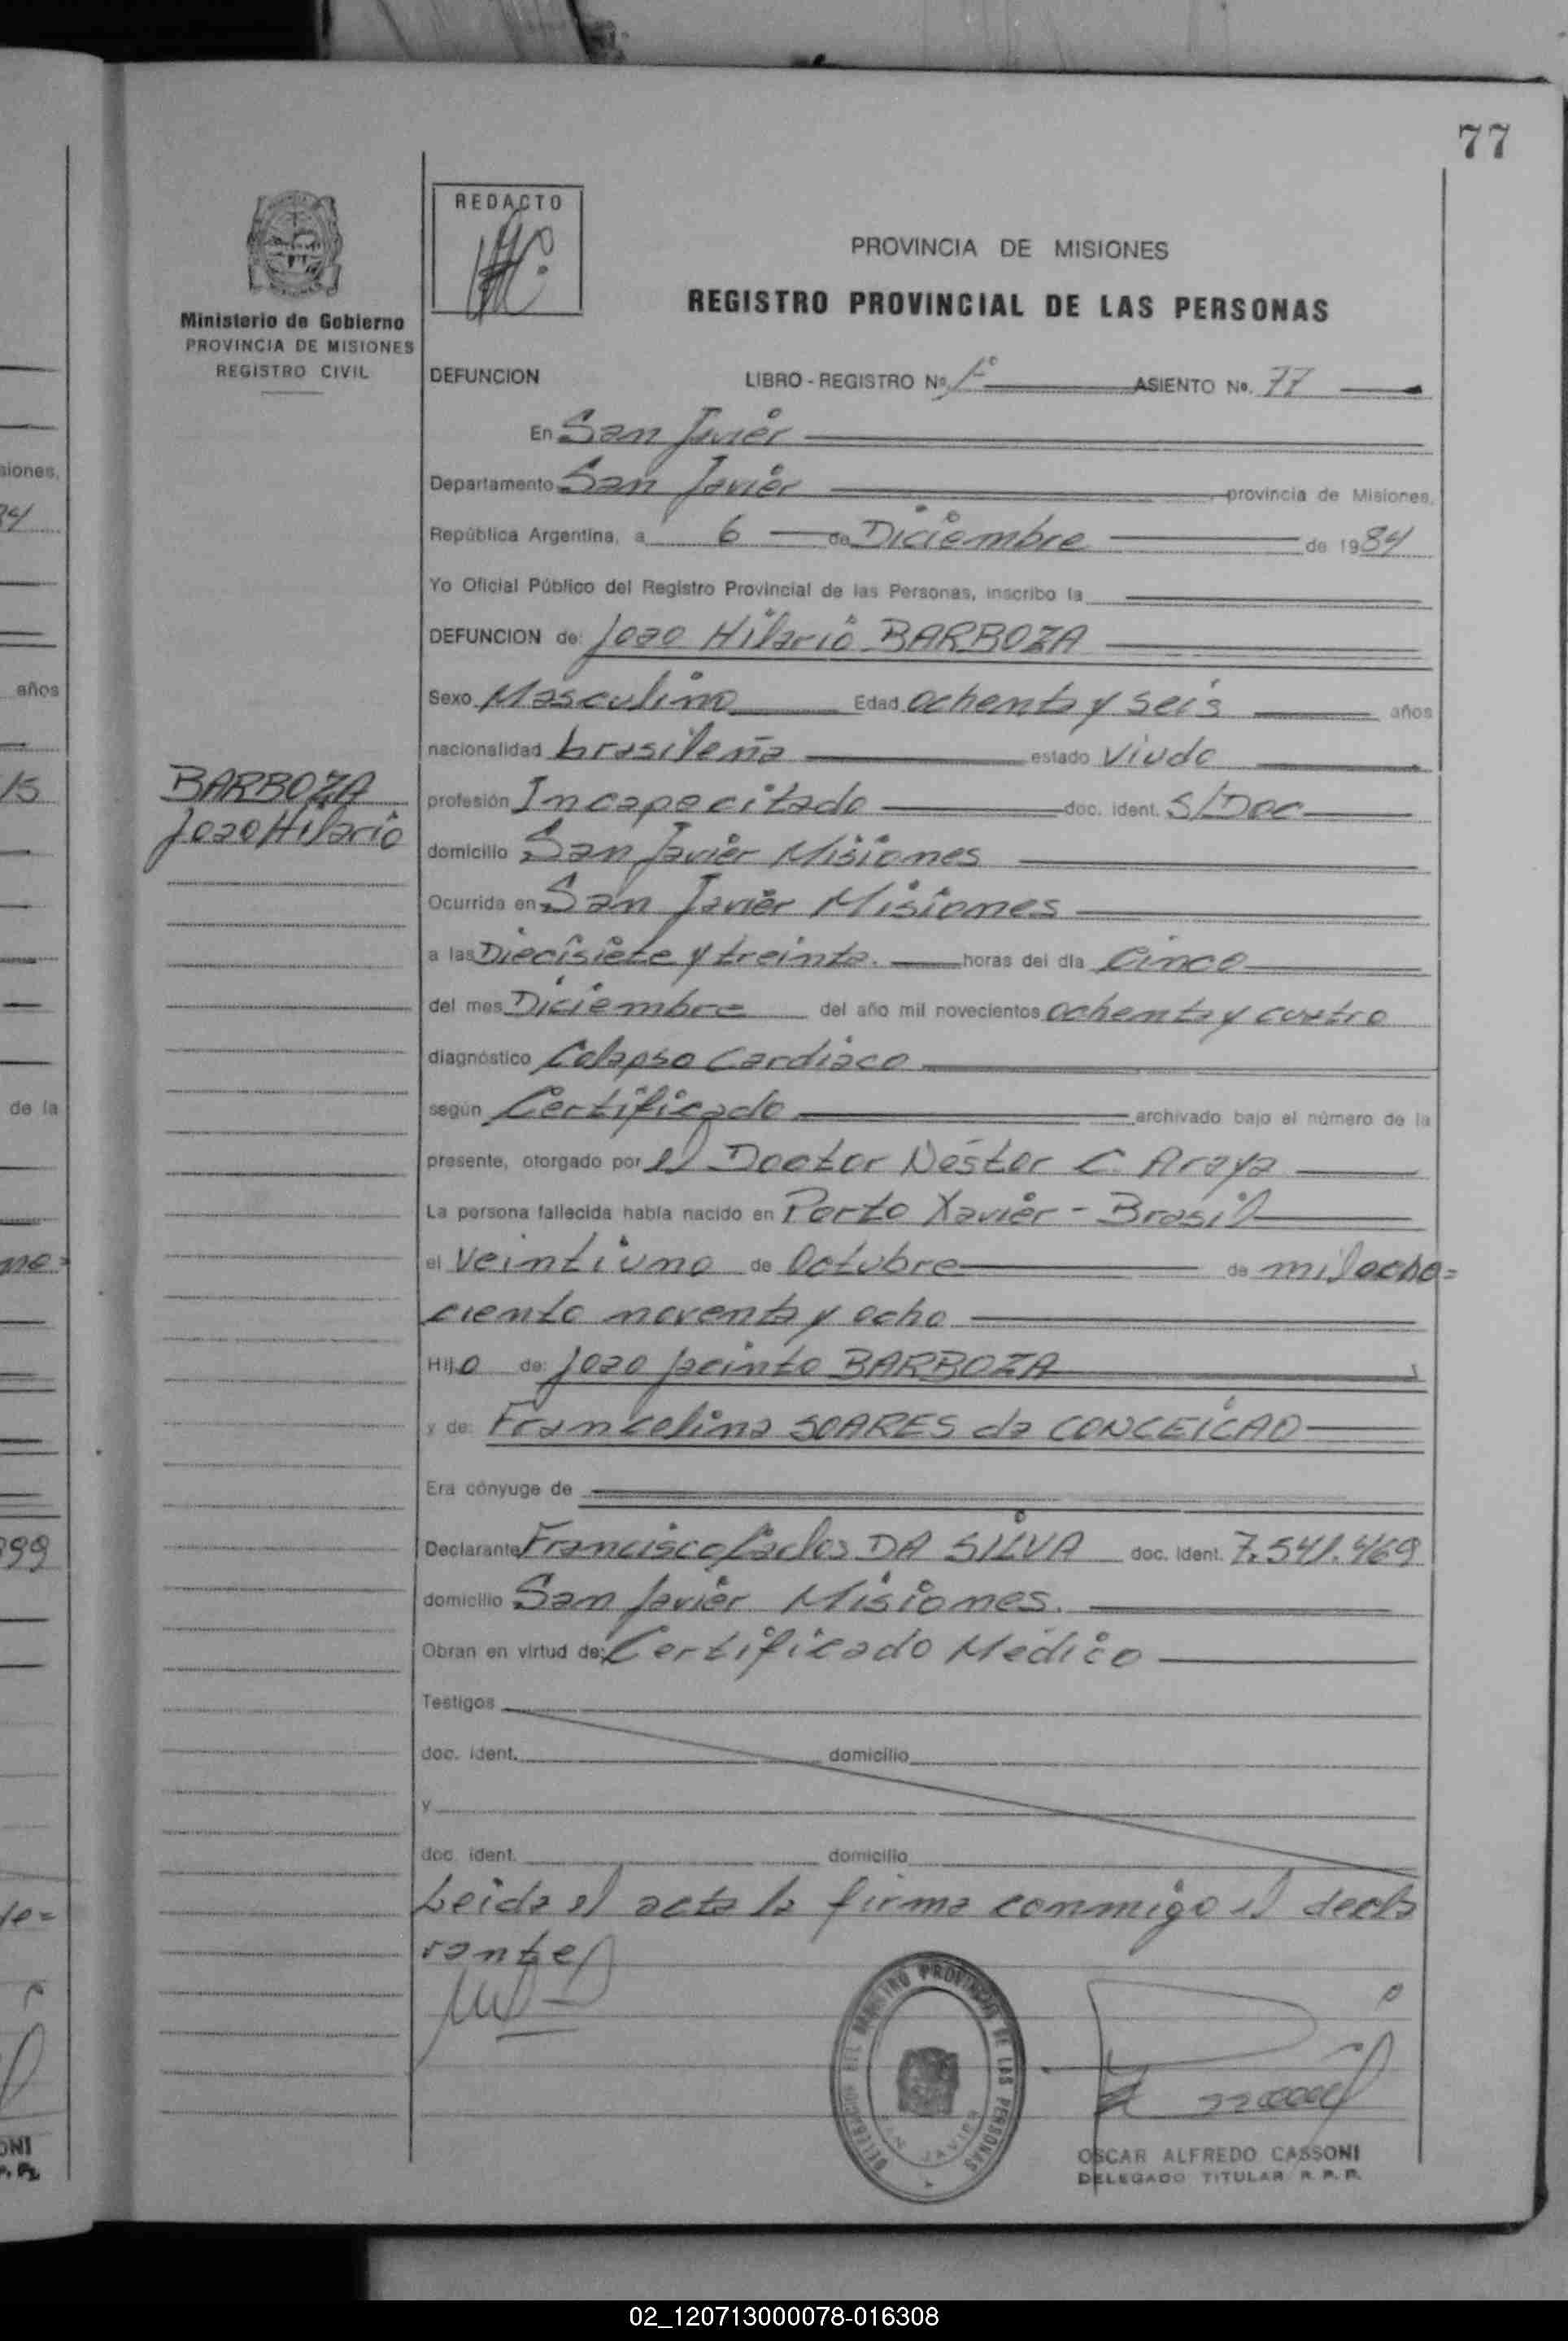 77
REDACTO
PROVINCIA DE MISIONES
REGISTRO PROVINCIAL DE LAS PERSONAS
Ministerio de Gobierno
PROVINCIA DE MISIONES
REGISTRO CIVIL
DEFUNCION LIBRO - REGISTRO Nº 1º ASIENTO Nº. 77
En San Javier
Departamento San Javier provincia de Misiones,
República Argentina, a 6 de Diciembre de 1984
Yo Oficial Público del Registro Provincial de las Personas, inscribo la
DEFUNCION de: Joao Hilario BARBOZA
Sexo Masculino Edad ochenta y seis años
nacionalidad brasileña estado Viudo
BARBOZA
Joao Hilario
profesión Incapacitado doc. ident. S/Doc
domicilio San Javier Misiones
Ocurrida en San Javier Misiones
a las Diecisiete y treinta. horas del día Cinco
del mes Diciembre del año mil novecientos ochenta y cuatro
diagnóstico Colapso Cardiaco
según Certificado archivado bajo el número de la
presente, otorgado por el Doctor Néstor C. Araya
La persona fallecida había nacido en Porto Xavier - Brasil
el veintiuno de Octubre de mil ocho=
ciento noventa y ocho
Hijo de: Joao Jacinto BARBOZA
y de: Francelina SOARES da CONCEICAO
Era cónyuge de
Declarante Francisco Carlos DA SILVA doc. ident. 7.541.469
domicilio San Javier Misiones.
Obran en virtud de: Certificado Médico
Testigos
doc. ident. domicilio
y
doc. ident. domicilio
Leida el acta la firma conmigo el decla
rante
DELEGACION DEL REGISTRO PROVINCIAL DE LAS PERSONAS
SAN JAVIER
OSCAR ALFREDO CASSONI
DELEGADO TITULAR R. P. P.
siones,
84
años
15
de la
no=
399
ONI
02_120713000078-016308